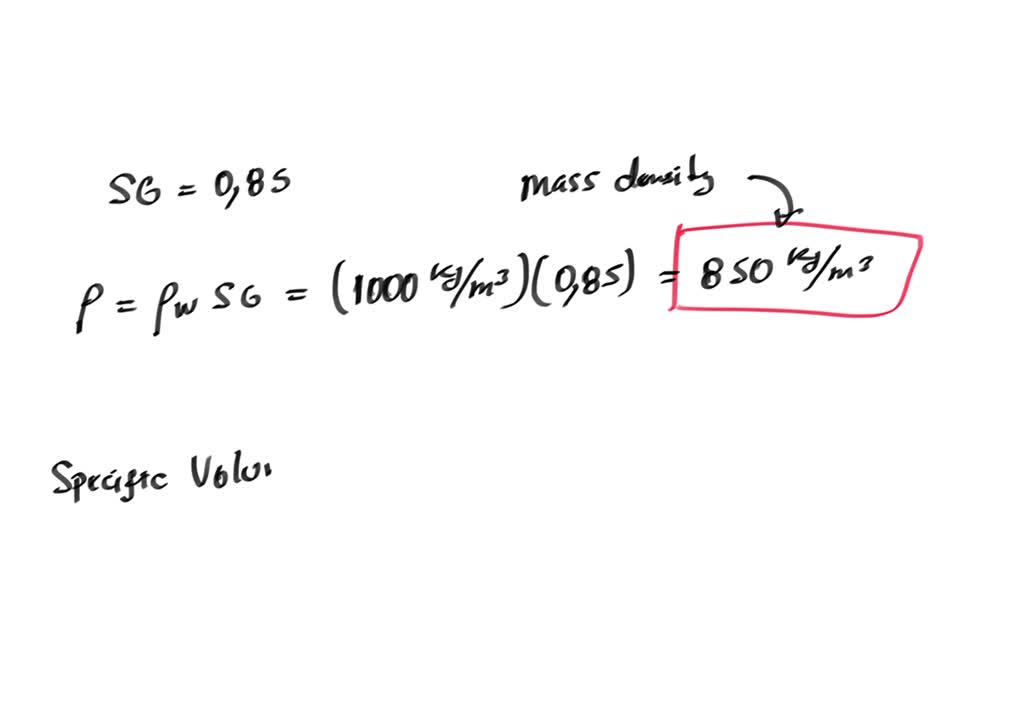 SG = 0,85
mass density
ρ = ρw SG = (1000 kg/m³)(0,85) = 850 kg/m³
Specific Volu